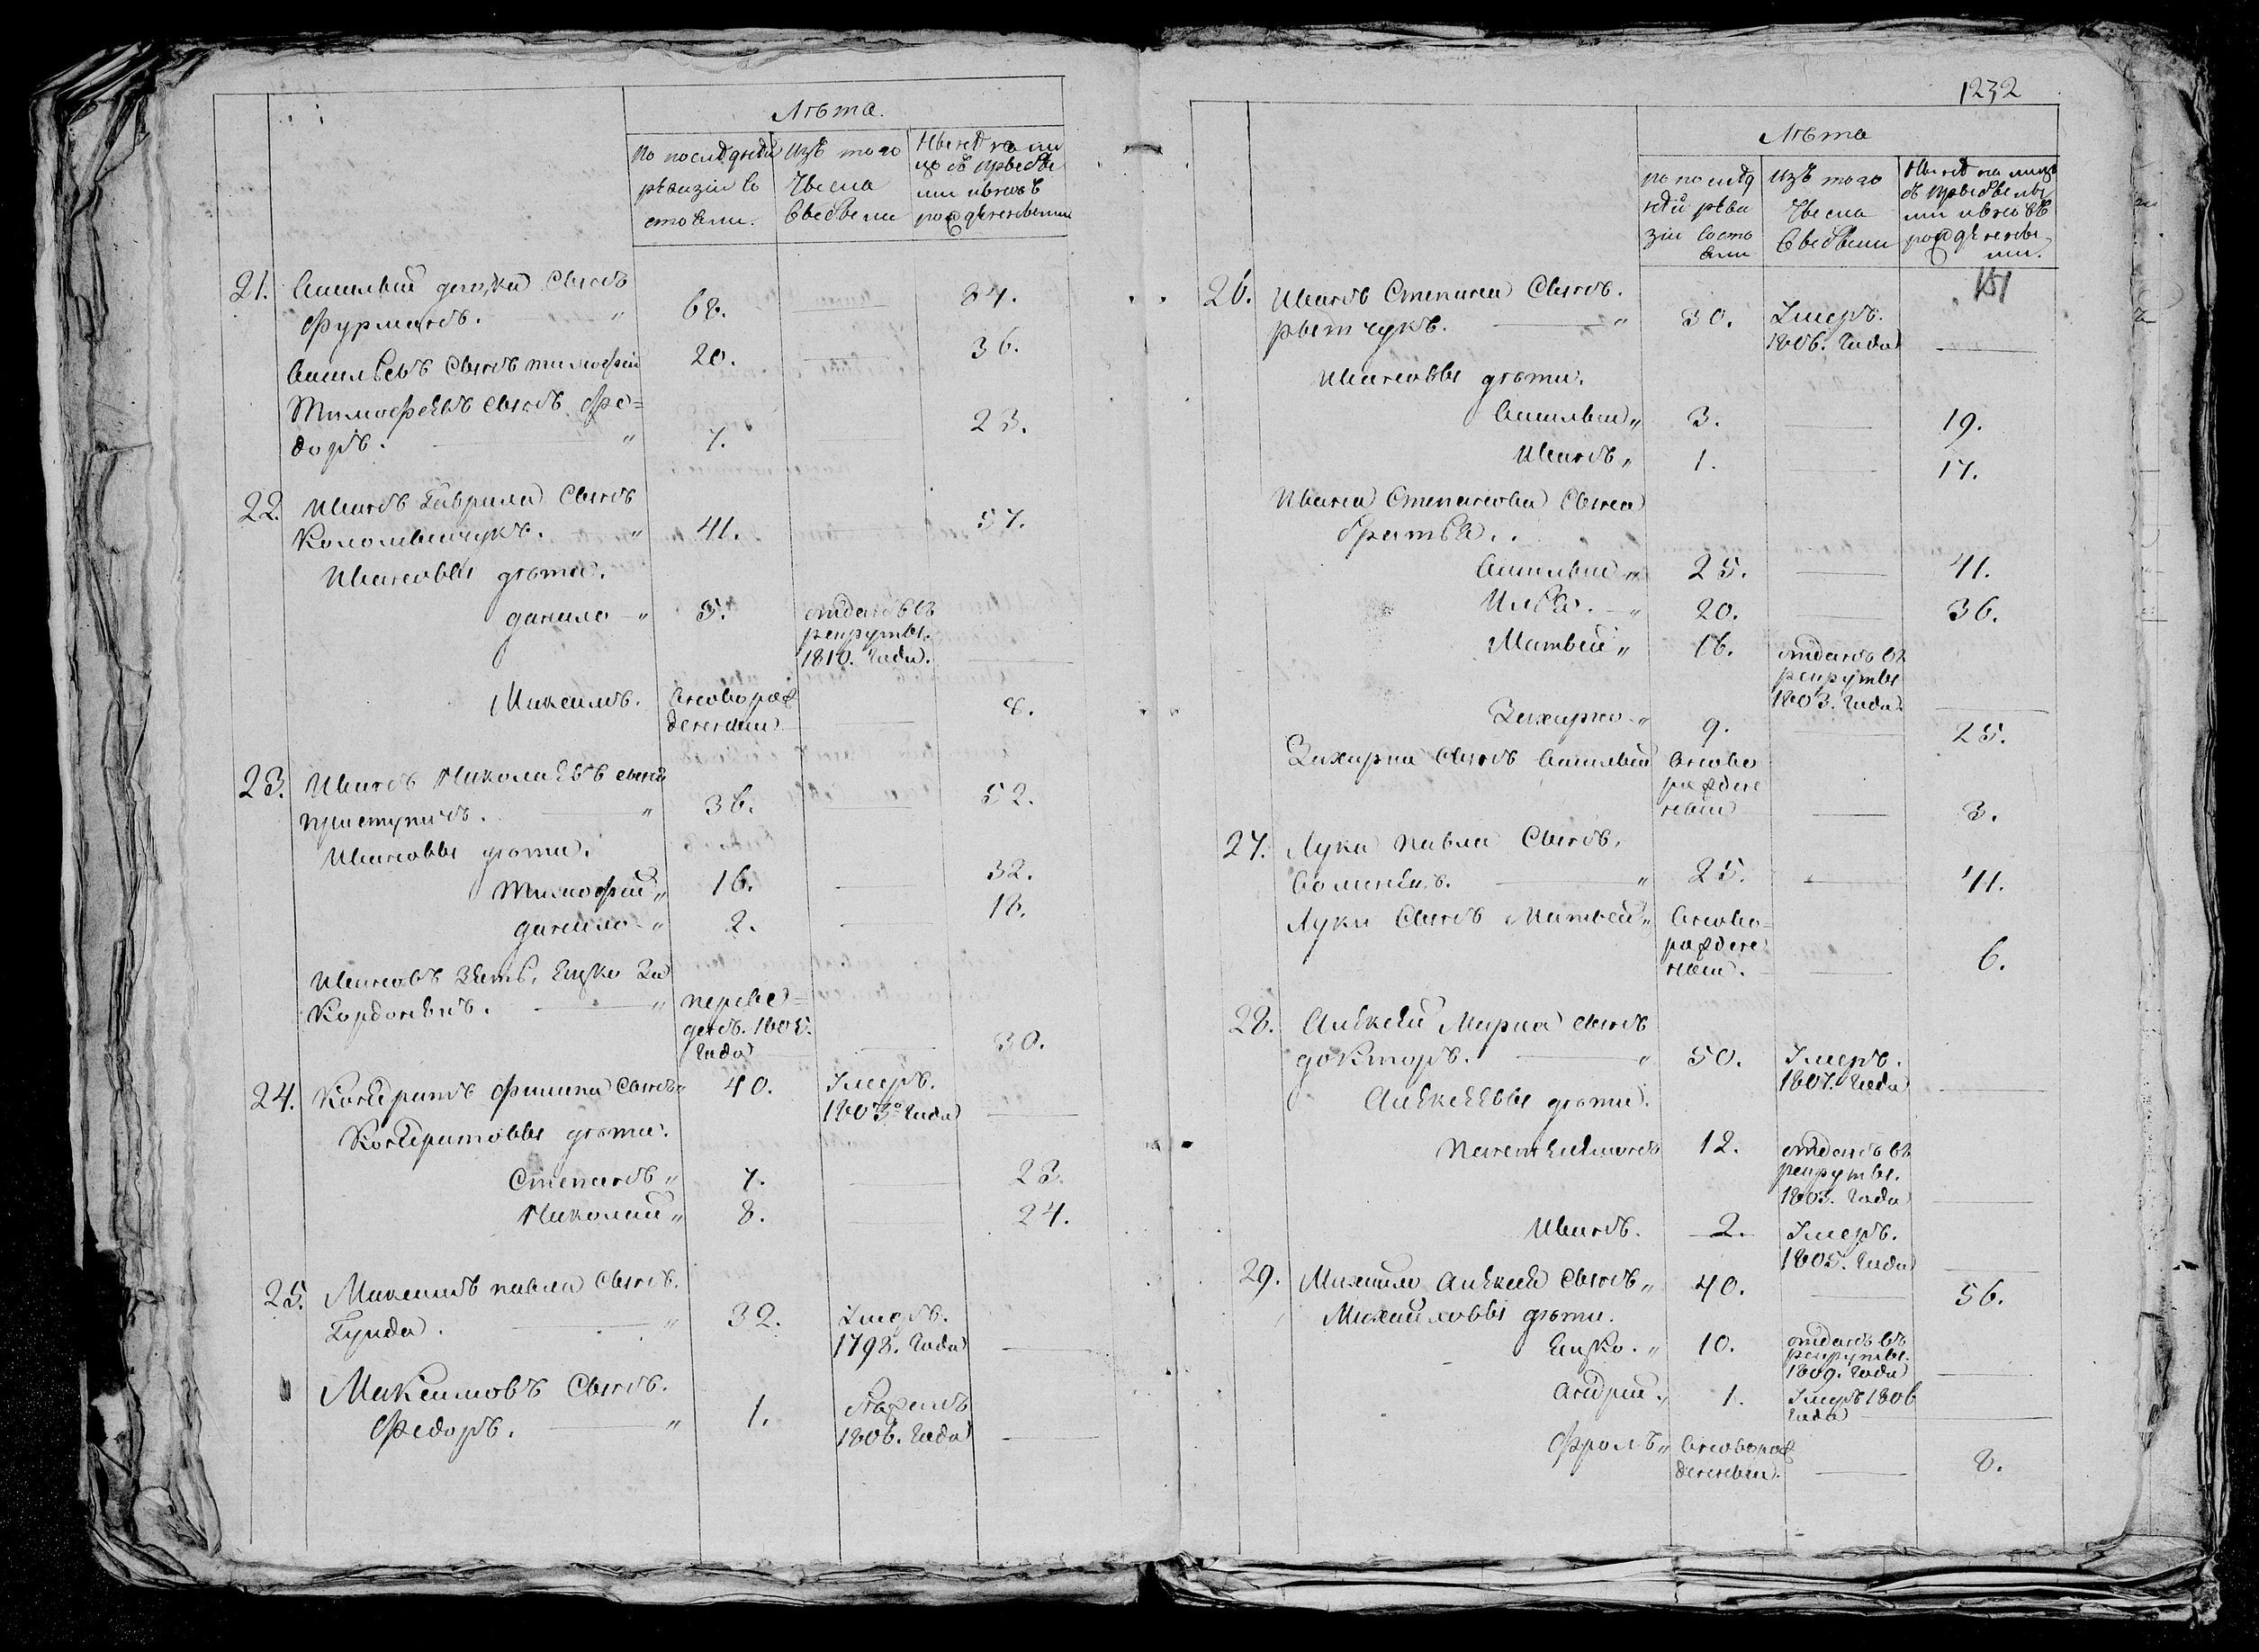 Лѣта.
По последней
ревизіи со
стояли.
Изъ того
Числа
выбыли
Ныне на ли
цо съ прибы
ми и вновь
рожденными
21. Василий Сынъ
Фурманъ. 68. 84.
Васильевъ Сынъ тимофей 20. 36.
Тимофеевъ Сынъ Фе=
доръ. 7. 23.
22. Иванъ Гаврила Сынъ
Коломыйчукъ. 41. 57.
Ивановы дѣти.
данило 5. отданъ въ
рекруты.
1810. Года.
Максимъ. вновь рож
денный 8.
23. Иванъ Николаевъ сынъ
приступа. 36. 52.
Ивановы дѣти.
Тимофей 16. 32.
данило 2. 18.
Ивановъ Зять, Ицко За
переве=
денъ. 1805.
Года 30.
24. Кондратъ Филипа Сынъ 40. Умеръ.
1803. Года
Кондратовы дѣти.
Степанъ 7. 23.
Николай 8. 24.
25. Максимъ павла Сынъ.
Гунда. 32. Умеръ.
1798. Года
Максимовъ Сынъ.
Федоръ. 1.
1806. Года
1232
Лѣта
по послед
ней реви
зіи состо
яли
Изъ того
Числа
выбыли
Ныне на лицо
съ прибылы
ми и вновь
рожденны
ми.
151
26. Иванъ Степана Сынъ.
30. Умеръ.
1806. Года
Ивановы дѣти.
Василий 3. 19.
Иванъ 1. 17.
Ивана Степанова Сына
братья.
Василий 25. 41.
Илья. 20. 36.
Матвей 16. отданъ въ
рекруты
1803. Года.
Захарко 9. 25.
Захарка Сынъ Василий вново
рожде
ный 3.
27. Лука павла Сынъ.
25. 41.
Луки Сынъ Матвей вново=
рожде
ный. 6.
28. Алексей Марка сынъ
докторъ. 50. Умеръ.
1807. Года
Алексеевы дѣти.
Пантелимонъ 12. отданъ въ
рекруты.
1803. Года
Иванъ. 2. Умеръ.
1805. Года
29. Михайло Алексея Сынъ 40. 56.
Михайловы дѣти.
Ицко. 10. отданъ въ
рекруты.
1809. Года
Андрей. 1. Умеръ 1806
Года
Фролъ вновь рож
денный. 8.